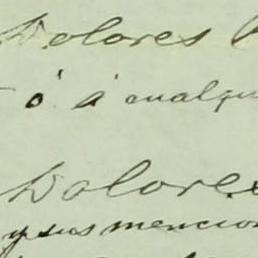 Dolores
ó á cualqu
Dolores
y sus mencion